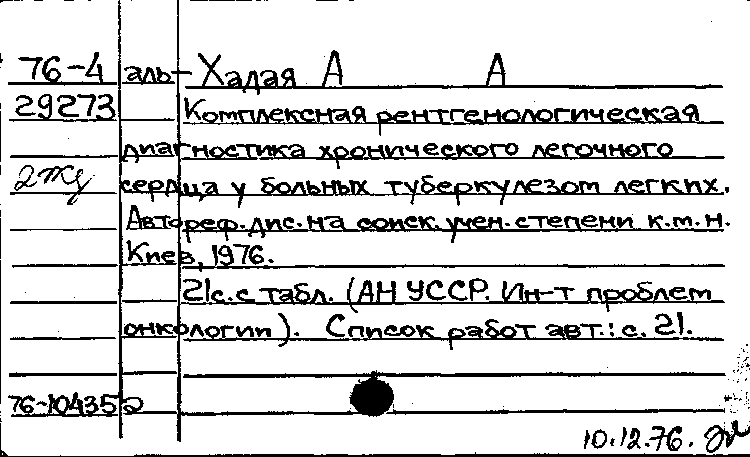 76-4 аль-Хадая А А
29273 Комплексная рентгенологическая
диагностика хронического легочного
сердца у больных туберкулезом легких.
Автореф. дис. на соиск. учен. степени к.м.н.
Киев, 1976.
21с. с табл. (АН УССР. Ин-т проблем
онкологии). Список работ авт.: с. 21.
76-104352
10.12.76.